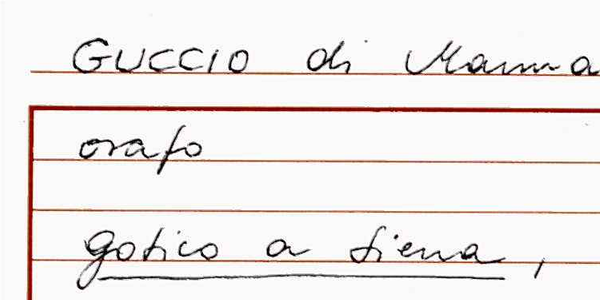 GUCCIO di Manna
orafo
gotico a Siena,